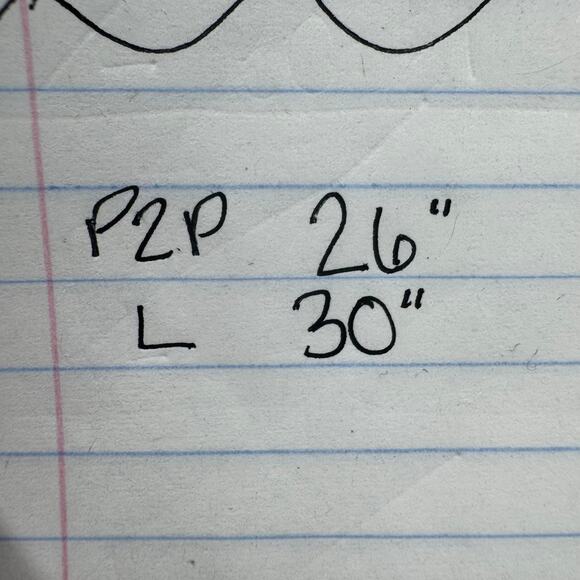 P2P 26"
L 30"